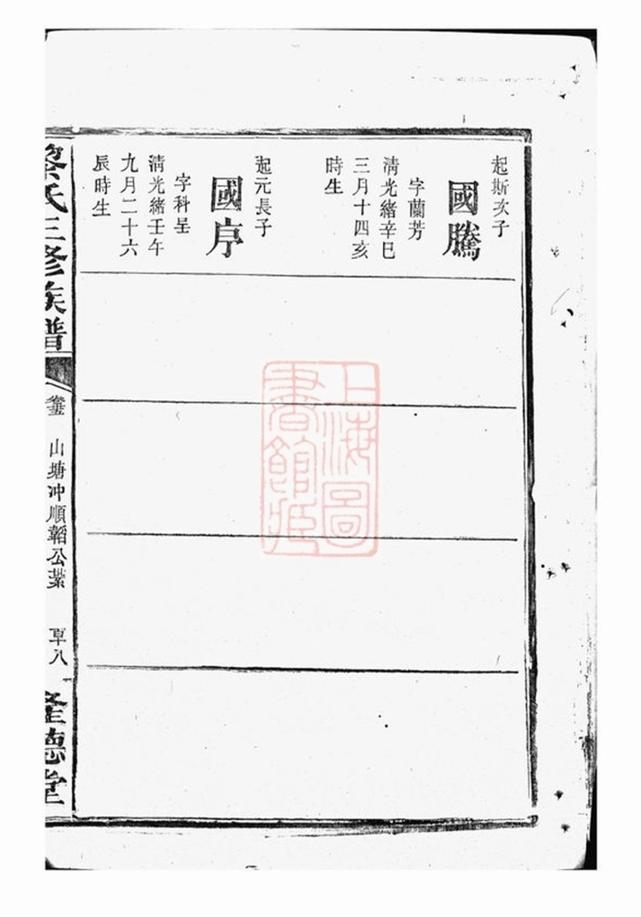 起斯次子
國騰
字蘭芳
清光緒辛巳
三月十四亥
時生
起元長子
國序
字科呈
清光緒壬午
九月二十六
辰時生
黎氏三修族譜
山塘冲順韜公葉
隆德堂
上海圖
書館藏